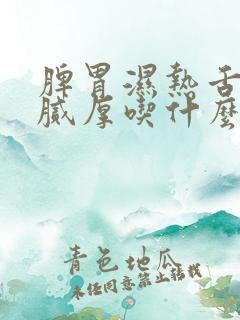 脾胃濕熱舌
膩厚喫什麽
青色地瓜
未经同意禁止转载